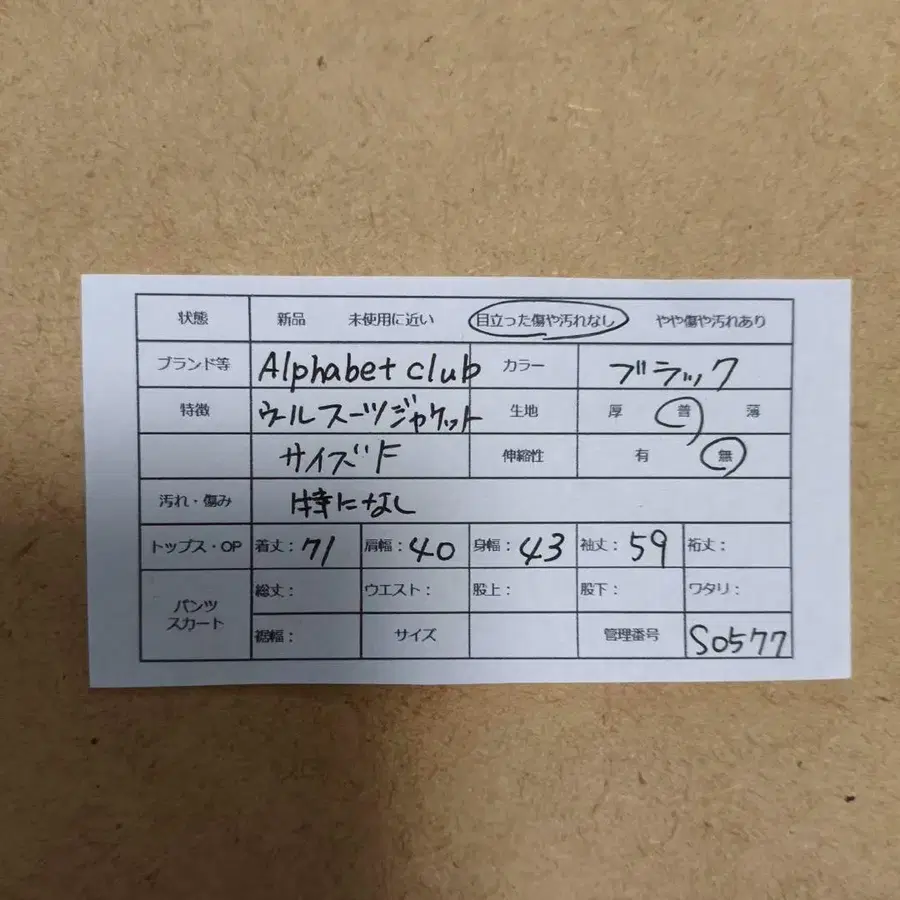 状態 新品 未使用に近い 目立った傷や汚れなし やや傷や汚れあり
ブランド等 Alphabet club カラー ブラック
特徴 ウールスーツジャケット 生地 厚 普 薄
サイズF 伸縮性 有 無
汚れ・傷み 特になし
トップス・OP 着丈：71 肩幅：40 身幅：43 袖丈：59 裄丈：
パンツ スカート 総丈： ウエスト： 股上： 股下： ワタリ：
裾幅： サイズ 管理番号 S0577